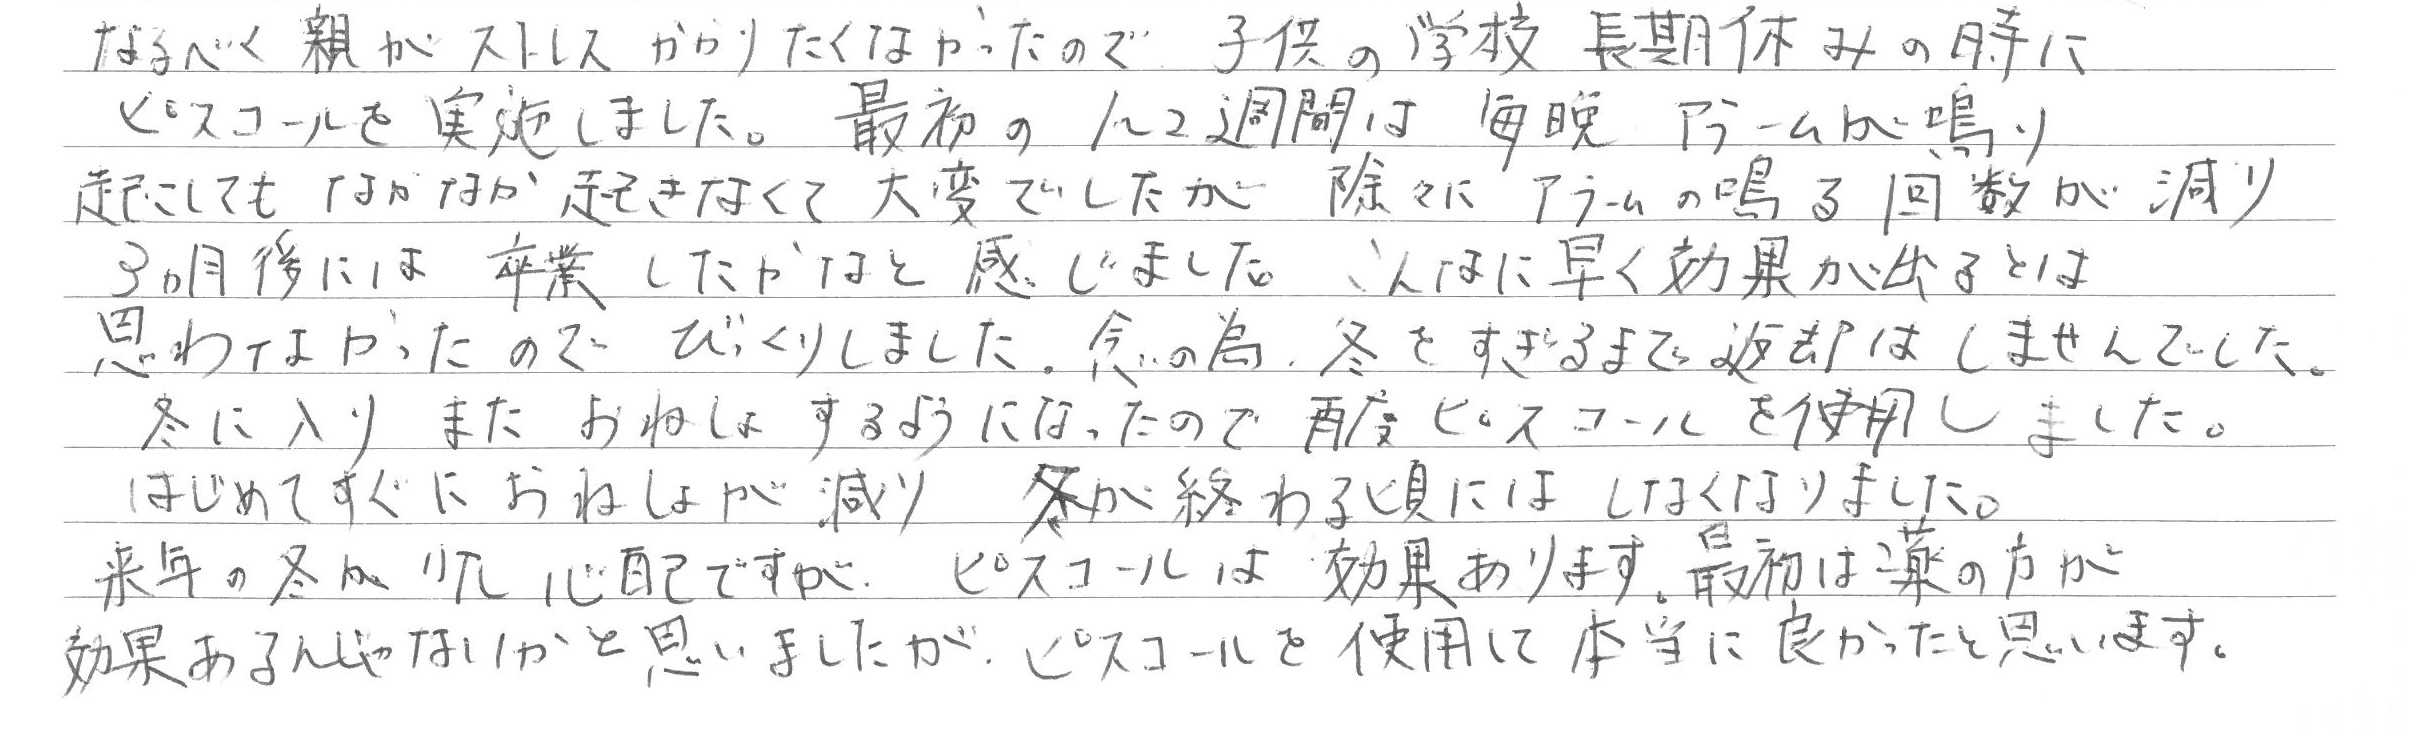 なるべく親がストレスかかりたくなかったので 子供の学校長期休みの時に
ピスコールを実施しました。最初の1〜2週間は毎晩 アラームが鳴り
起こしてもなかなか起きなくて大変でしたが 除々にアラームの鳴る回数が減り
3ヵ月後には卒業したかなと感じました。こんなに早く効果が出るとは
思わなかったのでびっくりしました。念の為、冬をすぎるまで返却はしませんでした。
冬に入りまたおねしょするようになったので再度ピスコールを使用しました。
はじめてすぐにおねしょが減り 冬が終わる頃にはしなくなりました。
来年の冬が少し心配ですが、ピスコールは効果あります。最初は薬の方が
効果あるんじゃないかと思いましたが、ピスコールを使用して本当に良かったと思います。